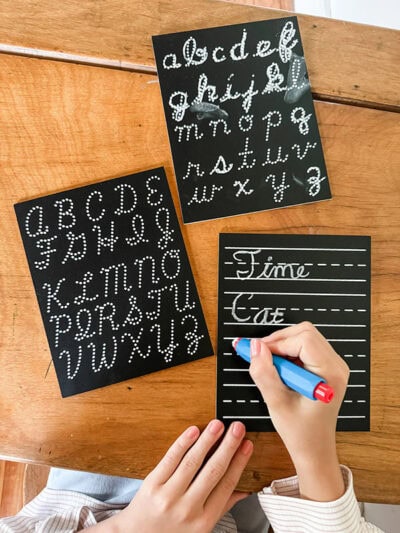 abcdef
ghijkl
mnopq
rstuv
wxyz
ABCDE
FGHIJ
KLMNO
PQRSTU
VWXYZ
Time
Cat